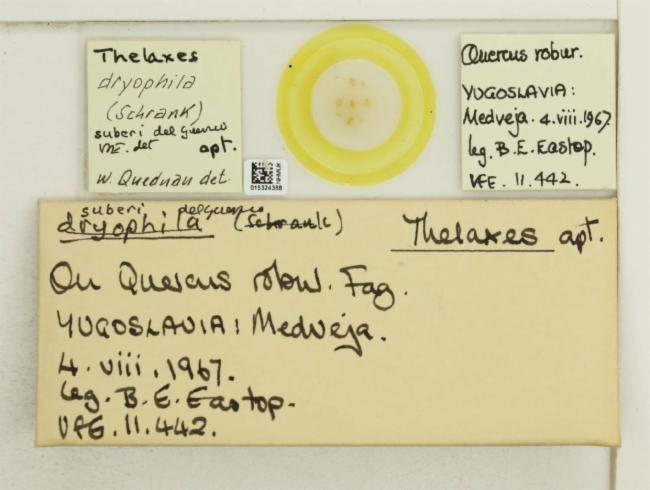 Thelaxes
dryophila
(Schrank)
suberi del Guercio
det. apt.
W. Quednau det.
NHMUK
015324388
Quercus robur.
YUGOSLAVIA:
Medveja. 4.viii.1967
leg. B.E. Eastop.
VFE. 11.442.
suberi delGuercio
dryophila (Schrank) Thelaxes apt.
On Quercus robur. Fag.
YUGOSLAVIA: Medveja.
4.viii.1967.
leg. B.E. Eastop.
VFE. 11.442.